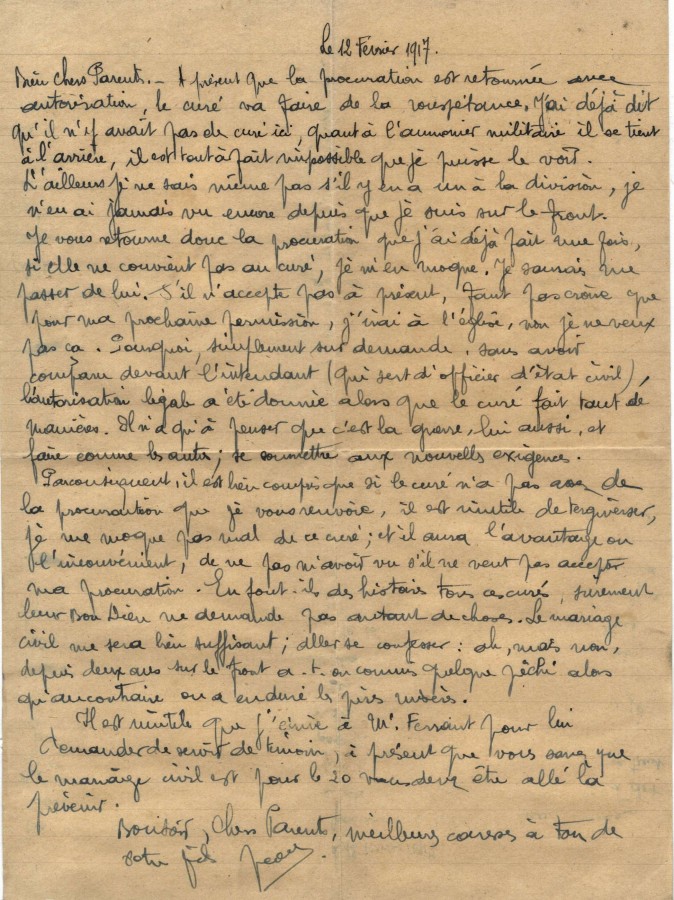 Le 12 Février 1917.
Bien Chers Parents. - A présent que la procuration est retournée avec
autorisation, le curé va faire de la rouspétance. J'ai déjà dit
qu'il n'y avait pas de curé ici, quant à l'aumonier militaire il se tient
à l'arrière, il est tout à fait impossible que je puisse le voir.
D'ailleurs je ne sais même pas s'il y en a un à la division, je
n'en ai jamais vu encore depuis que je suis sur le front.
Je vous retourne donc la procuration que j'ai déjà fait une fois,
si elle ne convient pas au curé, je m'en moque. Je saurais me
passer de lui. S'il n'accepte pas à présent, faut pas croire que
pour ma prochaine permission, j'irai à l'église, non je ne veux
pas ça. Pourquoi, simplement sur demande, sans avoir
comparu devant l'intendant (qui sert d'officier d'état civil),
l'autorisation légale a été donnée alors que le curé fait tant de
manières. Il n'a qu'à penser que c'est la guerre, lui aussi, et
faire comme les autres; se soumettre aux nouvelles exigences.
Par conséquent, il est bien compris que si le curé n'a pas assez de
la procuration que je vous renvoie, il est inutile de tergiverser,
je me moque pas mal de ce curé; et il aura l'avantage ou
l'inconvénient, de ne pas m'avoir vu s'il ne veut pas accepter
ma procuration. En font-ils des histoires tous ces curés, surement
leur Bon Dieu ne demande pas autant de choses. Le mariage
civil me sera bien suffisant; aller se confesser: oh, mais non,
depuis deux ans sur le front a-t-on commis quelque pêché alors
qu'au contraire on a enduré les pires misères.
Il est inutile que j'écrive à Mr. Ferrant pour lui
demander de servir de témoin, à présent que vous savez que
le mariage civil est pour le 20 vous devez être allé la
prévenir.
Bonsoir, Chers Parents, meilleures caresses à Fan de
votre fils Jean